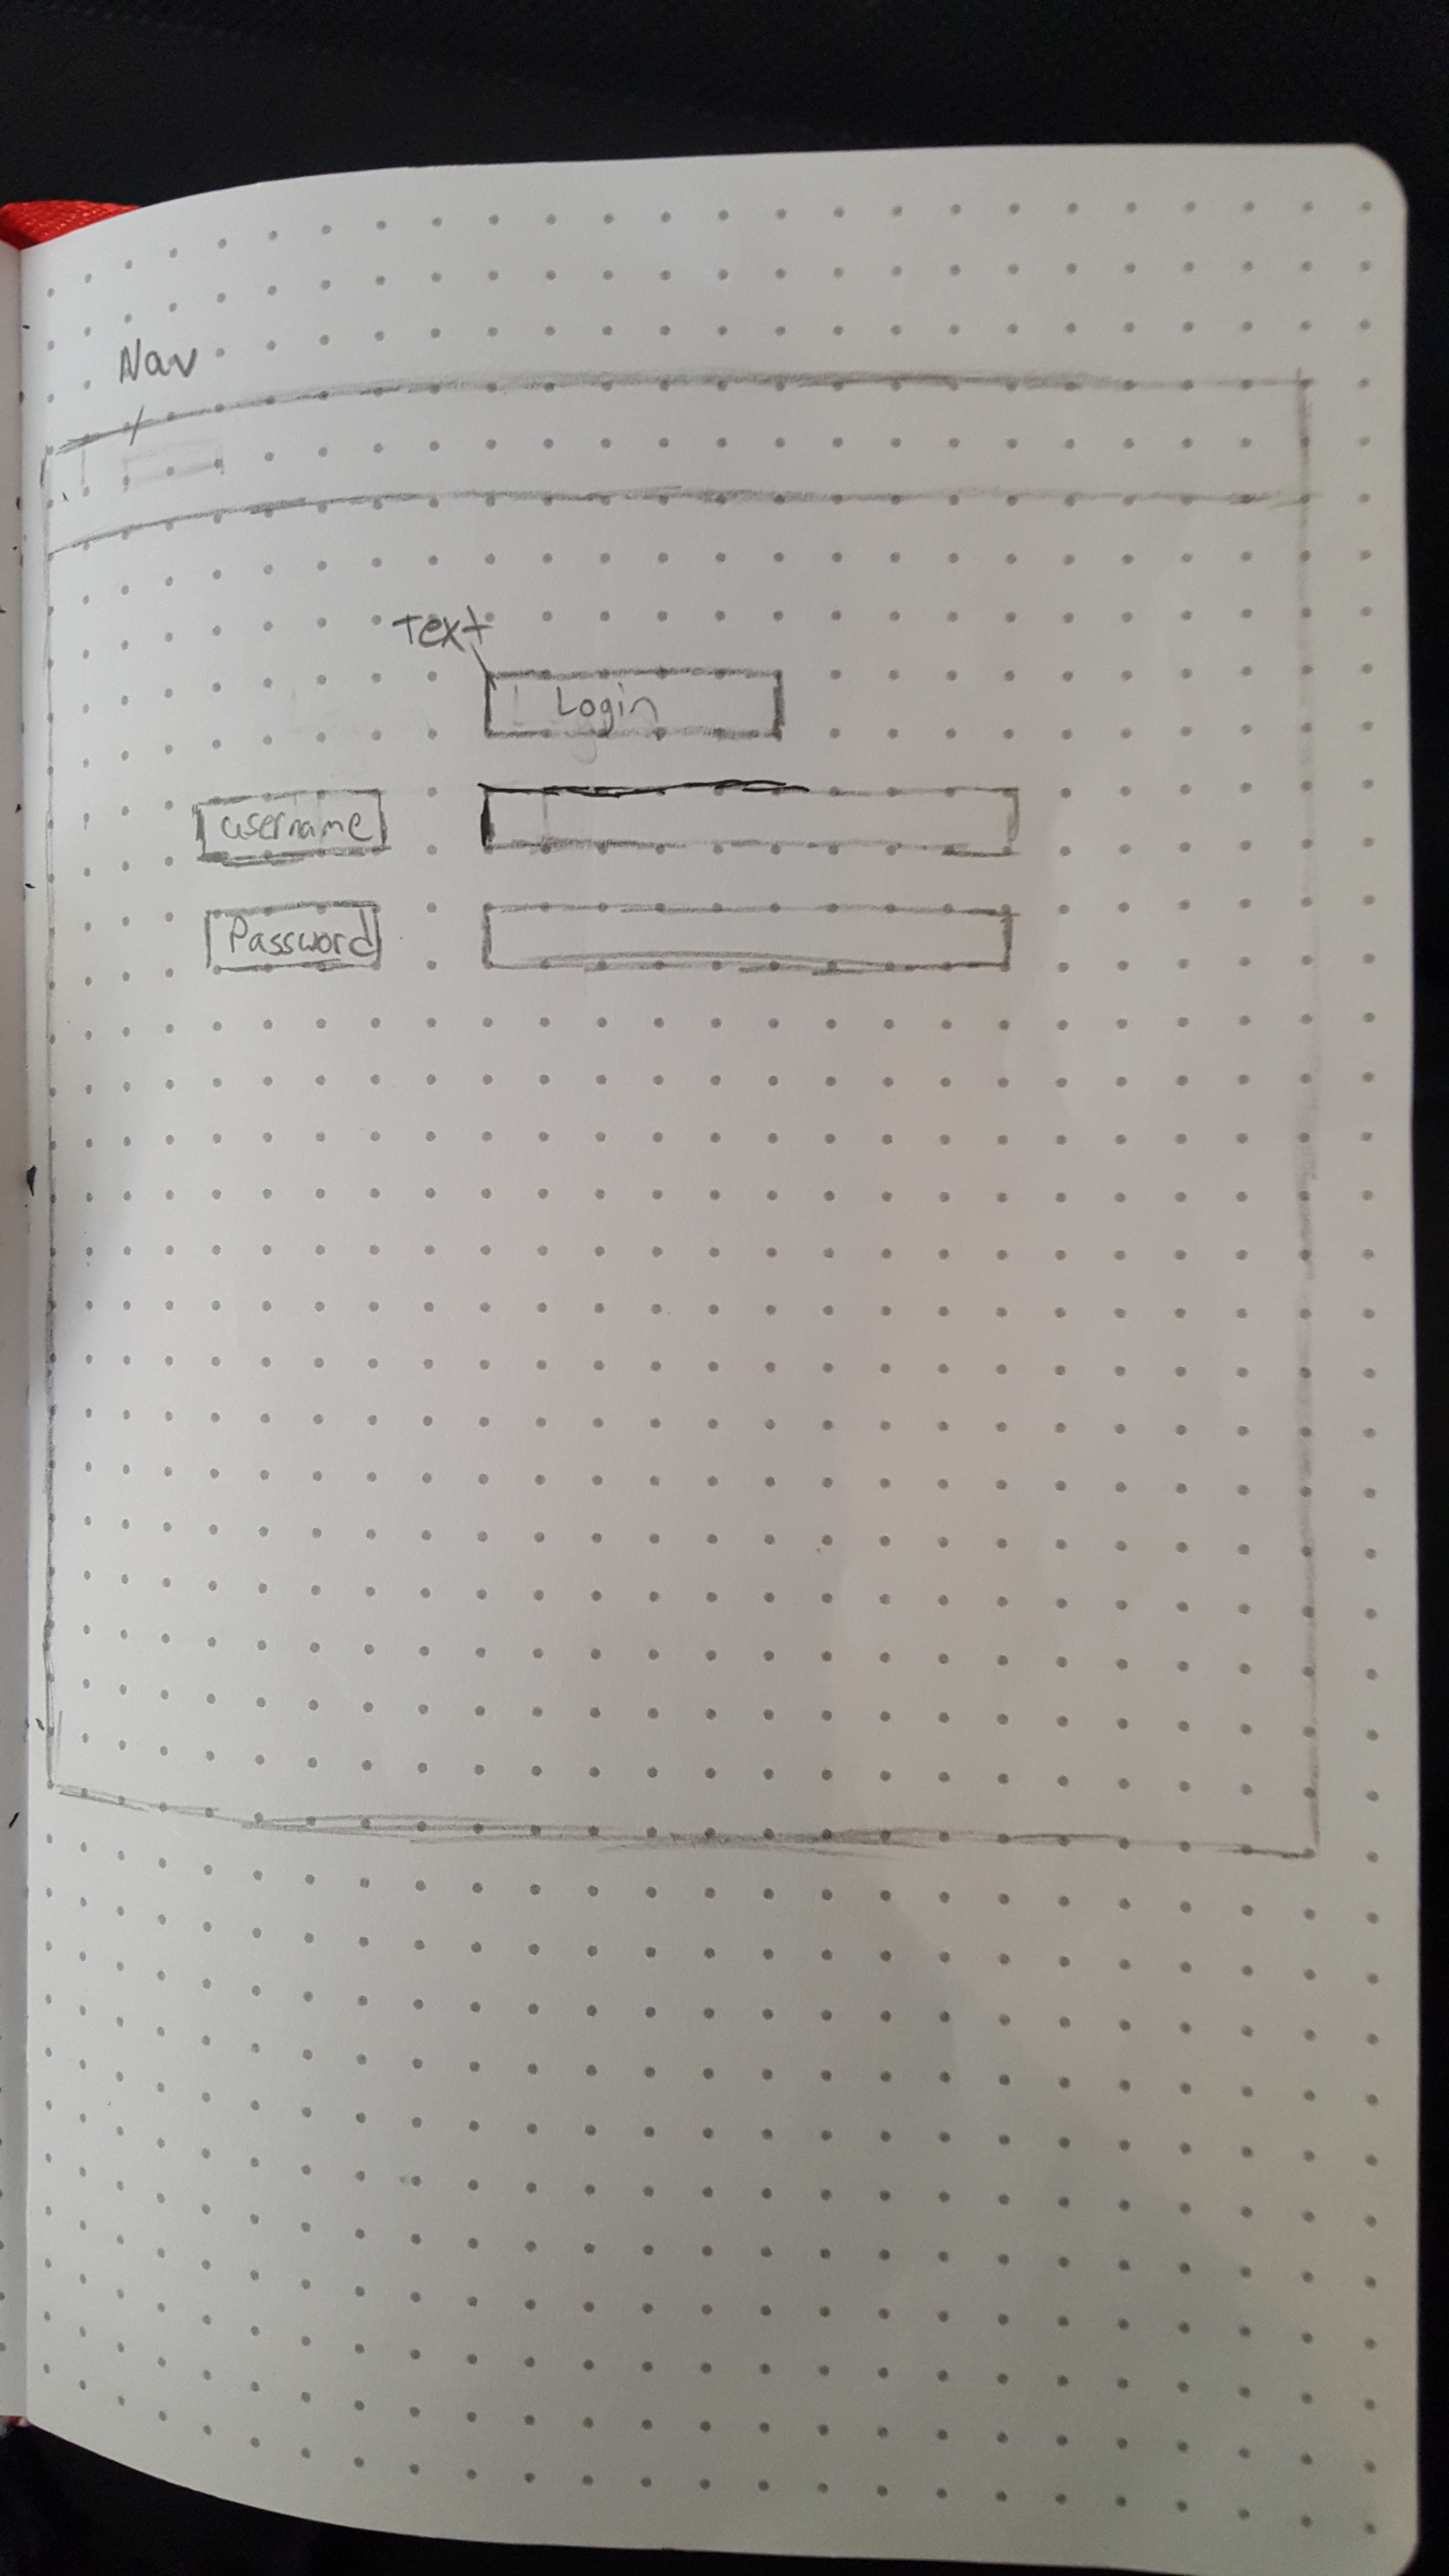 Nav
Text
Login
username
Password